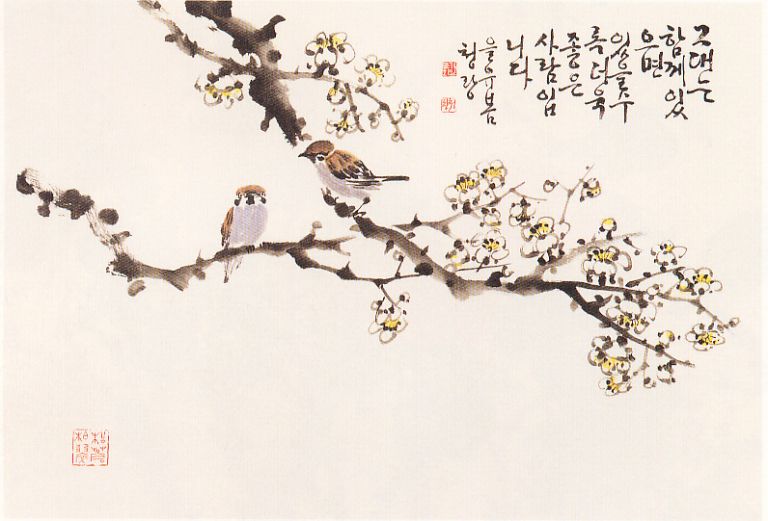 그대는
함께 있
으면
있을수
록 더욱
좋은
사람입
니다
을유봄
청랑